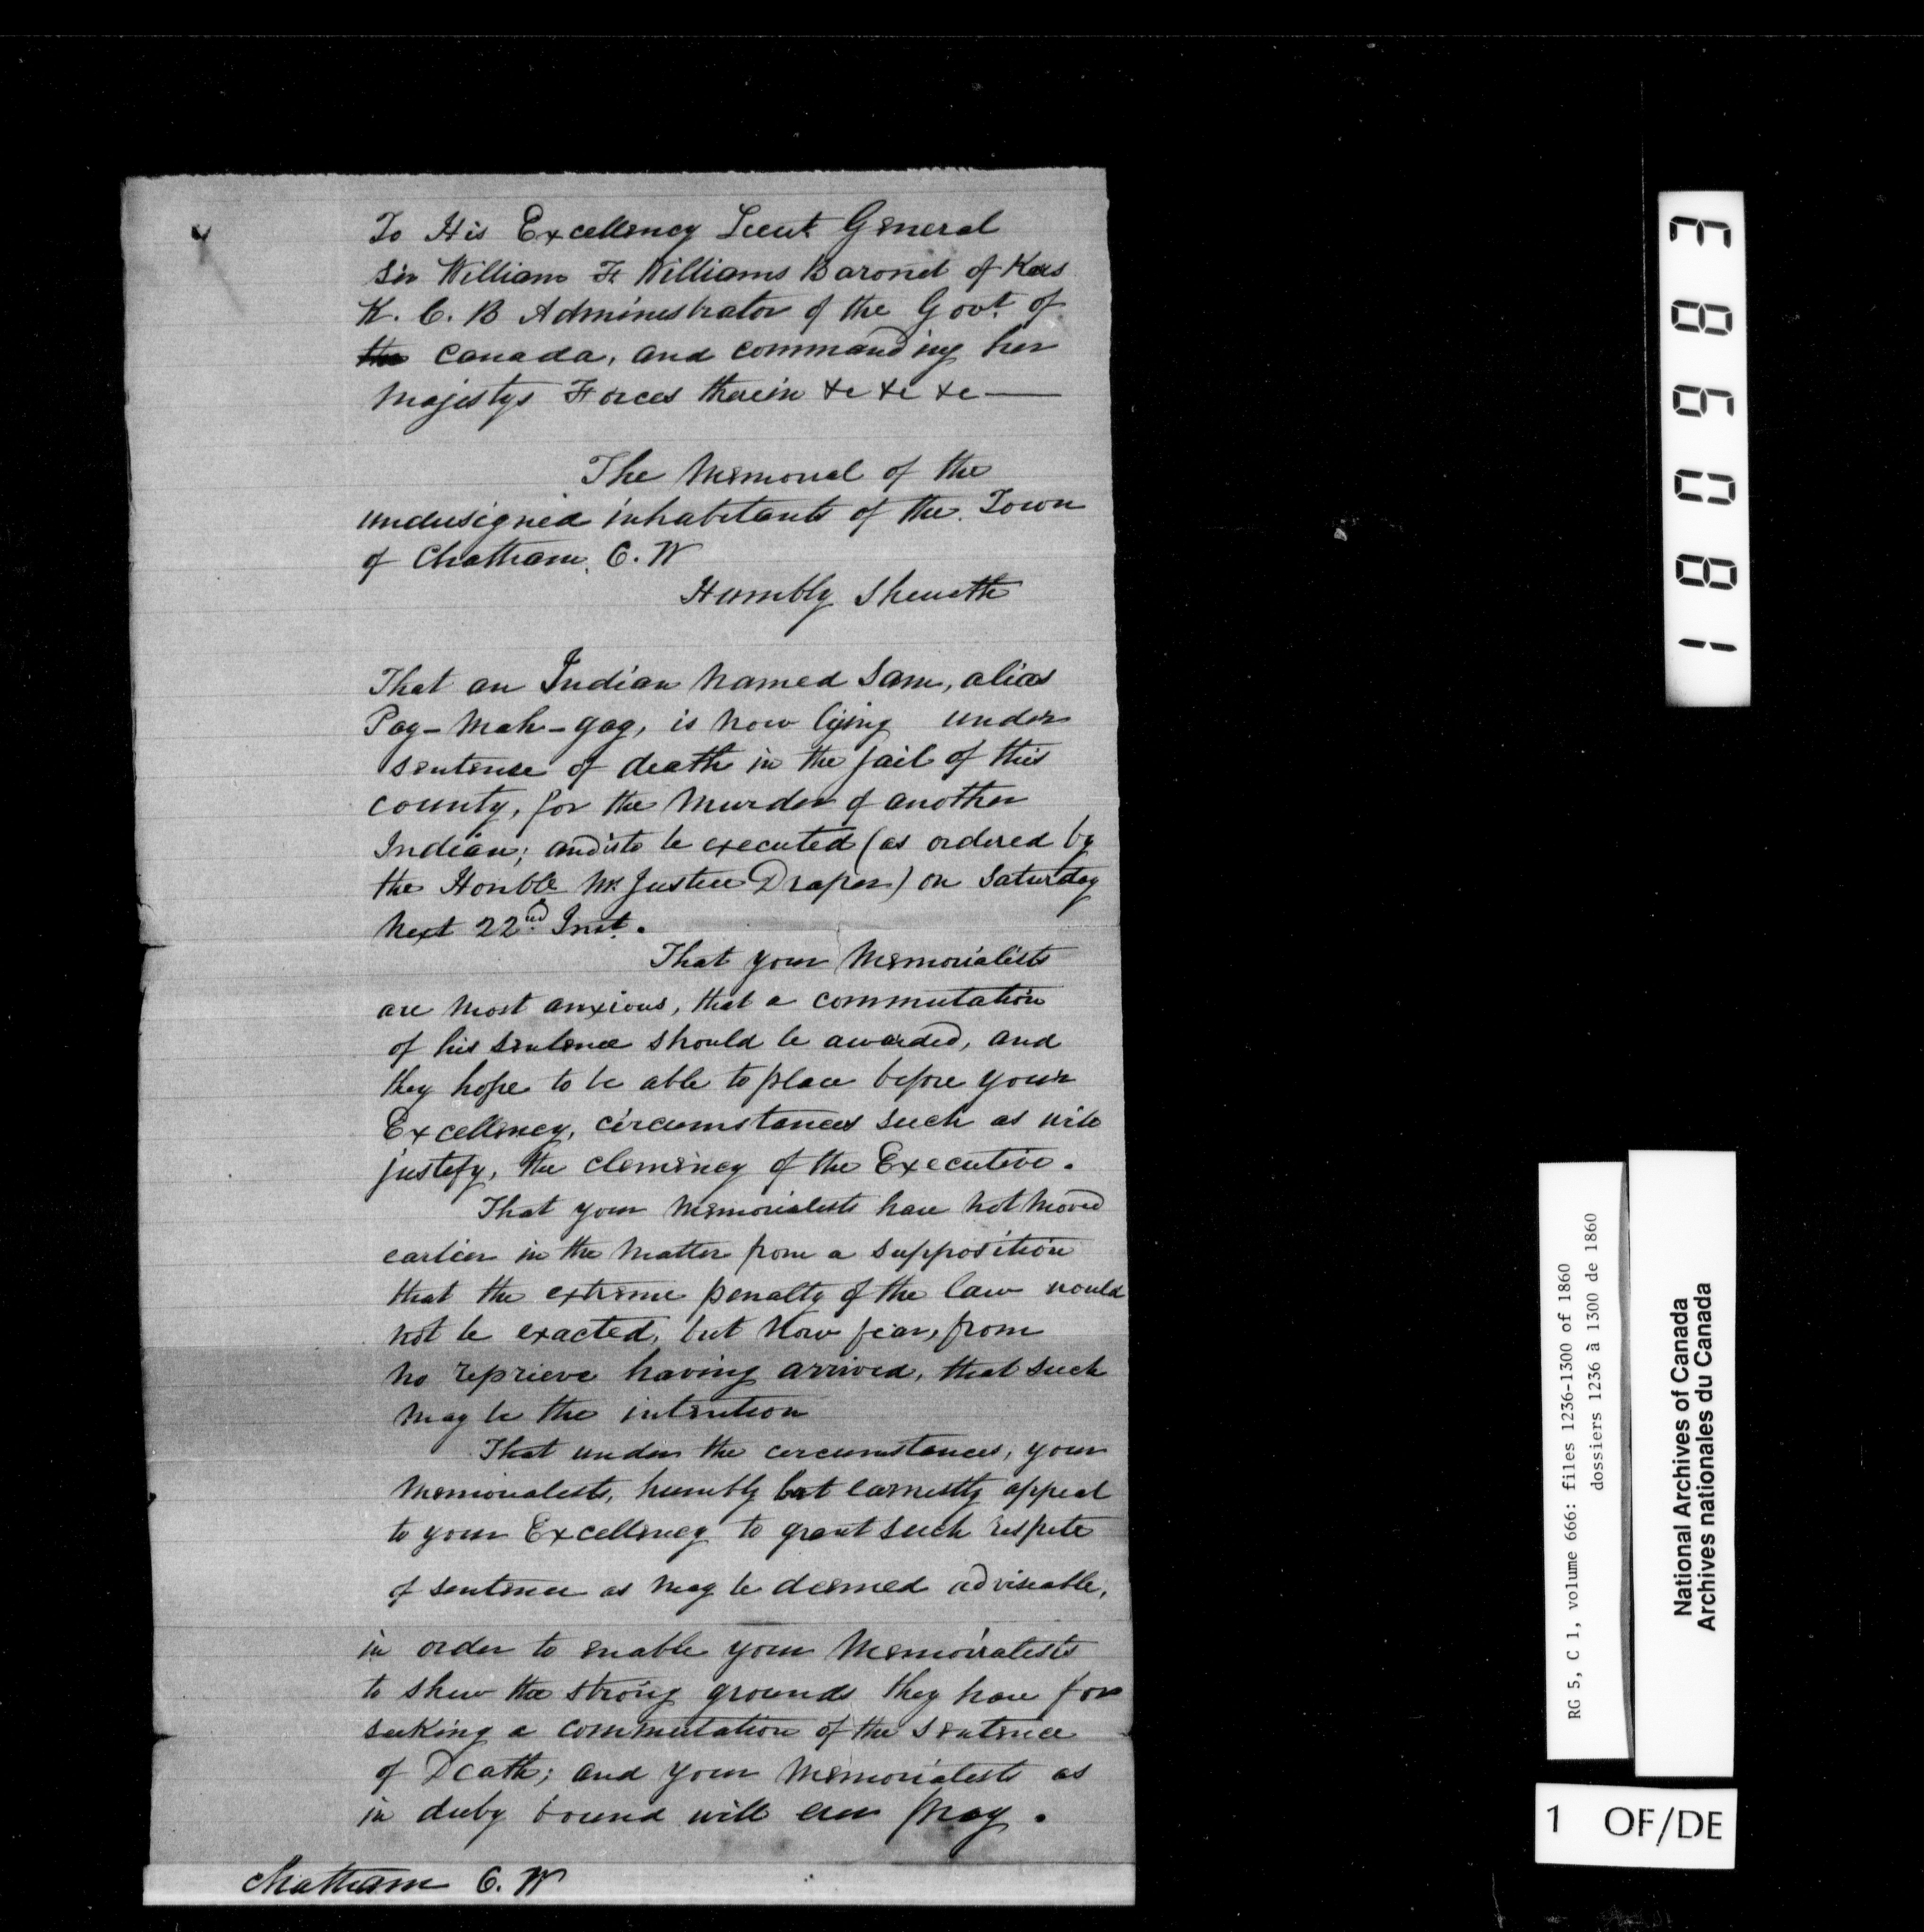 To His Excellency Lieut General
Sir William F. Williams Baronet of Kars
K. C. B Administrator of the Govt. of
the Canada, and commanding her
Majestys Forces therein &c &c &c —
The Memorial of the
undersigned inhabitants of the Town
of Chatham. C. W
Humbly Sheweth
That an Indian named Sam, alias
Pag-mah-gag, is now lying under
sentence of death in the jail of this
county, for the murder of another
Indian; and is to be executed (as ordered by
the Honble Mr Justice Draper) on Saturday
next 22nd Inst.
That your Memorialists
are most anxious, that a commutation
of his sentence should be awarded, and
they hope to be able to place before your
Excellency, circumstances such as will
justify, the clemency of the Executive.
That your memorialists have not moved
earlier in the matter from a supposition
that the extreme penalty of the law would
not be exacted, but now fear, from
no reprieve having arrived, that such
may be the intention
That under the circumstances, your
Memorialists, humbly but earnestly appeal
to your Excellency to grant such respite
of sentence as may be deemed adviseable,
in order to enable your Memorialists
to shew the strong grounds they have for
seeking a commutation of the sentence
of Death; and your Memorialists as
in duty bound will ever pray.
Chatham C. W
180983
RG 5, C 1, volume 666: files 1236-1300 of 1860
dossiers 1236 à 1300 de 1860
National Archives of Canada
Archives nationales du Canada
1 OF/DE